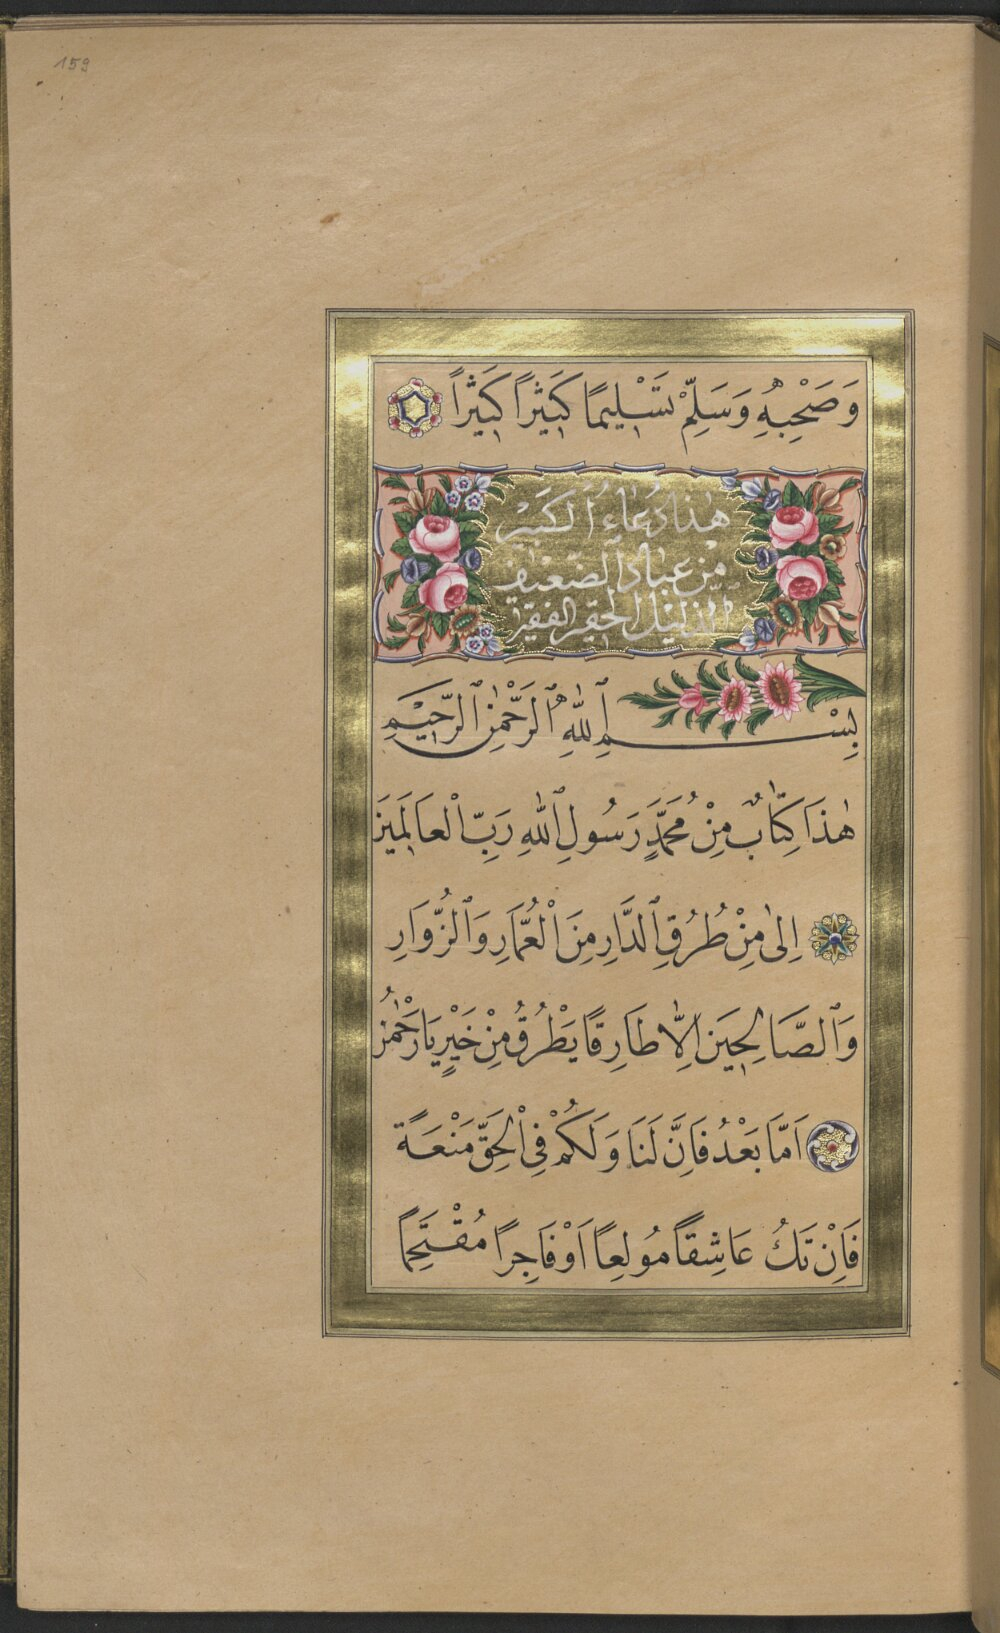 159
وَصَحْبِهِ وَسَلِّمْ تَسْلِيمًا كَثِيرًا كَثِيرًا
هٰذَا دُعَاءُ الْكَبِيرْ
مِنْ عِبَادِ الضَّعِيفِ
الذَّلِيلِ الْحَقِيرِ الْفَقِيرِ
بِسْمِ ٱللّٰهِ ٱلرَّحْمٰنِ ٱلرَّحِيْمِ
هٰذَا كِتَابٌ مِنْ مُحَمَّدٍ رَسُولِ ٱللّٰهِ رَبِّ الْعَالَمِينَ
اِلٰى مِنْ طُرُقِ ٱلدَّارِ مِنَ الْعُمَّارِ وَٱلزُّوَارِ
وَٱلصَّالِحِينَ اِلَّا طَارِقًا يَطْرُقُ مِنْ خَيْرٍ يَا رَحْمٰنُ
اَمَّا بَعْدُ فَاِنَّ لَنَا وَلَكُمْ فِي الْحَقِّ مَنْعَةً
فَاِنْ تَكُ عَاشِقًا مُولِعًا اَوْ فَاجِرًا مُقْتَحِمًا